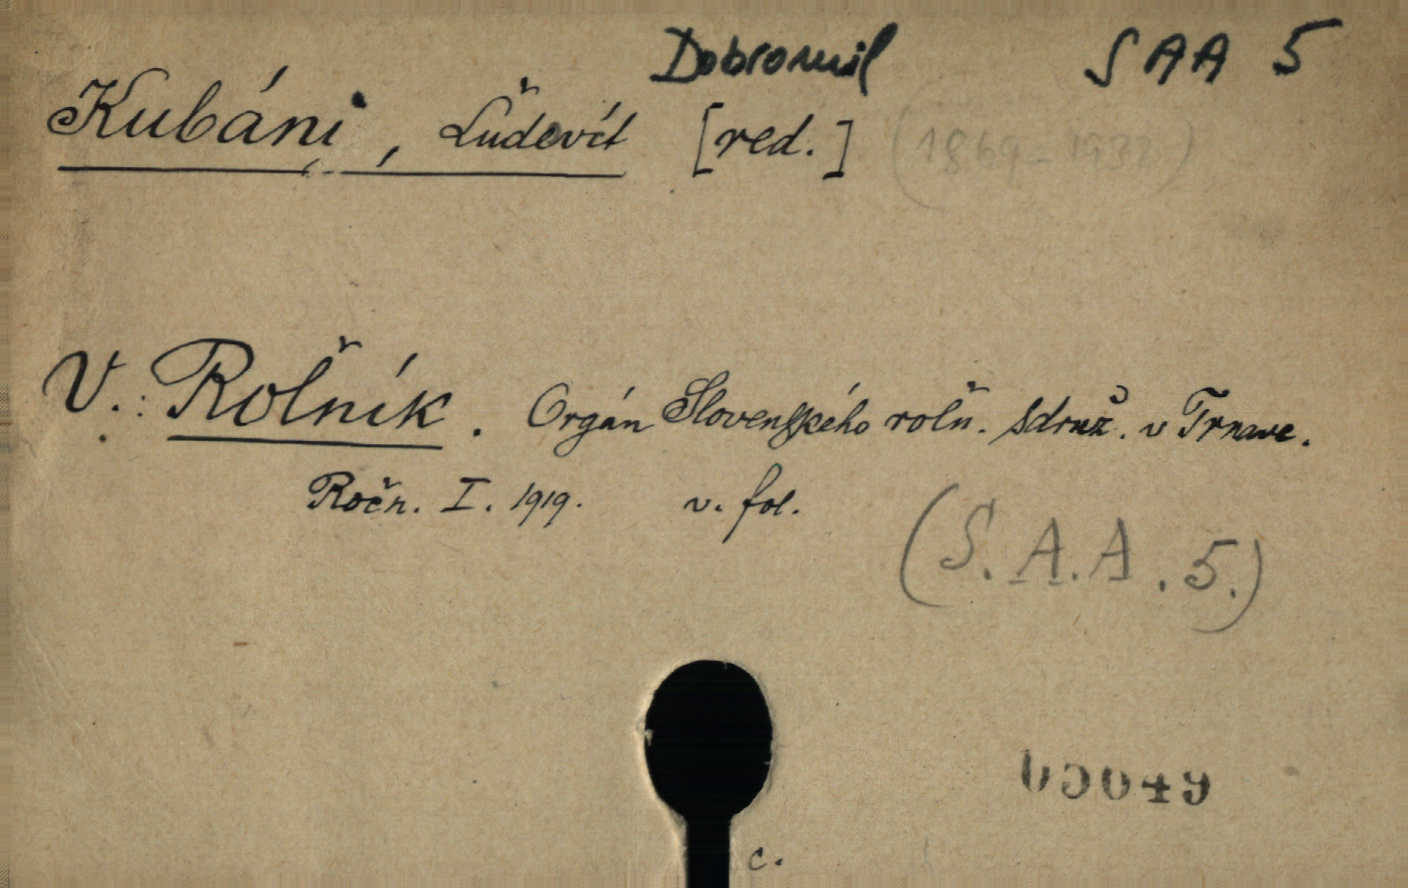 Dobromil SAA 5
Kubáni, Ľudevít [red.] (1869-193)
V.: Roľník. Orgán Slovenského roľn. sdruž. v Trnave.
Ročn. I. 1919. v. fol.
(S.A.A. 5.)
05049
c.